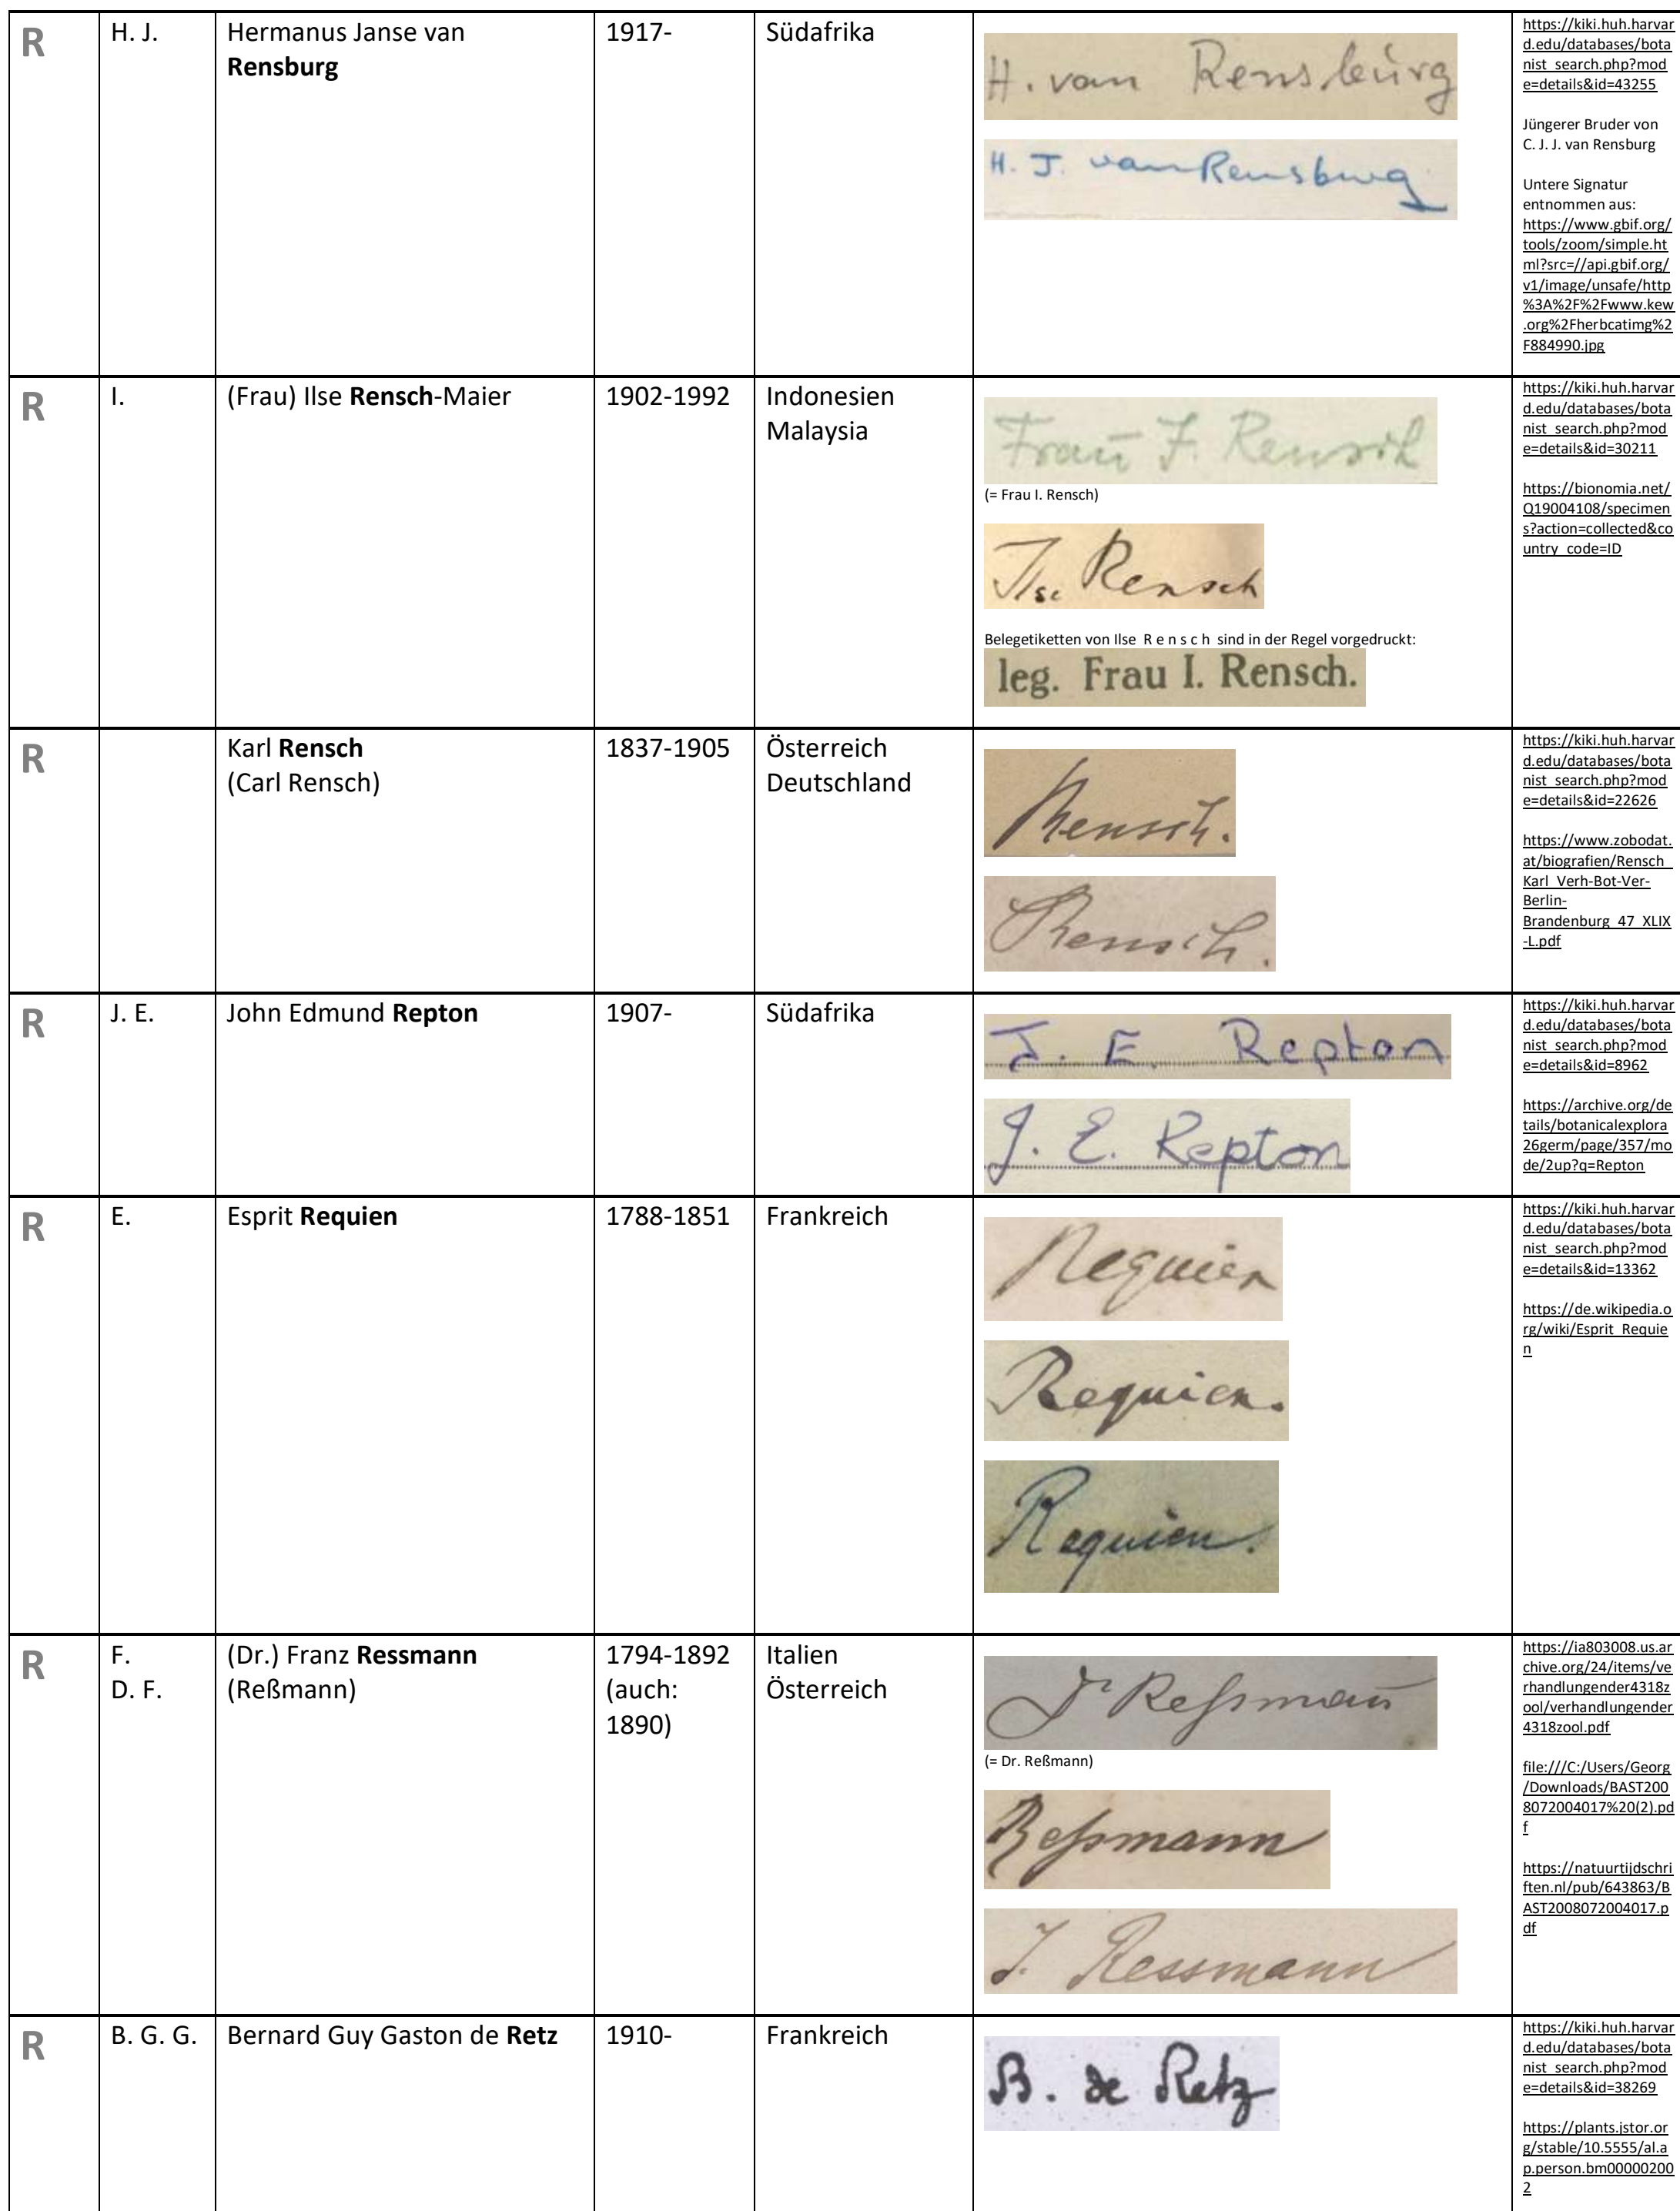 R
H. J.
Hermanus Janse van
Rensburg
1917-
Südafrika
H. van Rensburg
H. J. van Rensburg
https://kiki.huh.harvar
d.edu/databases/bota
nist_search.php?mod
e=details&id=43255
Jüngerer Bruder von
C. J. J. van Rensburg
Untere Signatur
entnommen aus:
https://www.gbif.org/
tools/zoom/simple.ht
ml?src=//api.gbif.org/
v1/image/unsafe/http
%3A%2F%2Fwww.kew
.org%2Fherbcatimg%2
F884990.jpg
R
I.
(Frau) Ilse Rensch-Maier
1902-1992
Indonesien
Malaysia
Frau I. Rensch
(= Frau I. Rensch)
Ilse Rensch
Belegetiketten von Ilse R e n s c h sind in der Regel vorgedruckt:
leg. Frau I. Rensch.
https://kiki.huh.harvar
d.edu/databases/bota
nist_search.php?mod
e=details&id=30211
https://bionomia.net/
Q19004108/specimen
s?action=collected&co
untry_code=ID
R
Karl Rensch
(Carl Rensch)
1837-1905
Österreich
Deutschland
Rensch.
Rensch.
https://kiki.huh.harvar
d.edu/databases/bota
nist_search.php?mod
e=details&id=22626
https://www.zobodat.
at/biografien/Rensch_
Karl_Verh-Bot-Ver-
Berlin-
Brandenburg_47_XLIX
-L.pdf
R
J. E.
John Edmund Repton
1907-
Südafrika
J. E. Repton
J. E. Repton
https://kiki.huh.harvar
d.edu/databases/bota
nist_search.php?mod
e=details&id=8962
https://archive.org/de
tails/botanicalexplora
26germ/page/357/mo
de/2up?q=Repton
R
E.
Esprit Requien
1788-1851
Frankreich
Requien
Requien.
Requien.
https://kiki.huh.harvar
d.edu/databases/bota
nist_search.php?mod
e=details&id=13362
https://de.wikipedia.o
rg/wiki/Esprit_Requie
n
R
F.
D. F.
(Dr.) Franz Ressmann
(Reßmann)
1794-1892
(auch:
1890)
Italien
Österreich
Dr Reßmann
(= Dr. Reßmann)
Reßmann
F. Ressmann
https://ia803008.us.ar
chive.org/24/items/ve
rhandlungender4318z
ool/verhandlungender
4318zool.pdf
file:///C:/Users/Georg
/Downloads/BAST200
8072004017%20(2).pd
f
https://natuurtijdschri
ften.nl/pub/643863/B
AST2008072004017.p
df
R
B. G. G.
Bernard Guy Gaston de Retz
1910-
Frankreich
B. de Retz
https://kiki.huh.harvar
d.edu/databases/bota
nist_search.php?mod
e=details&id=38269
https://plants.jstor.or
g/stable/10.5555/al.a
p.person.bm00000200
2